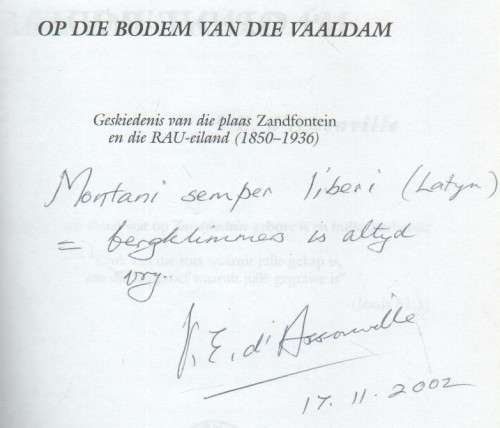 OP DIE BODEM VAN DIE VAALDAM
Geskiedenis van die plaas Zandfontein
en die RAU-eiland (1850–1936)
Montani semper liberi (Latyn)
= bergklimmers is altyd
vry.
E. di Assomville
17.11.2002